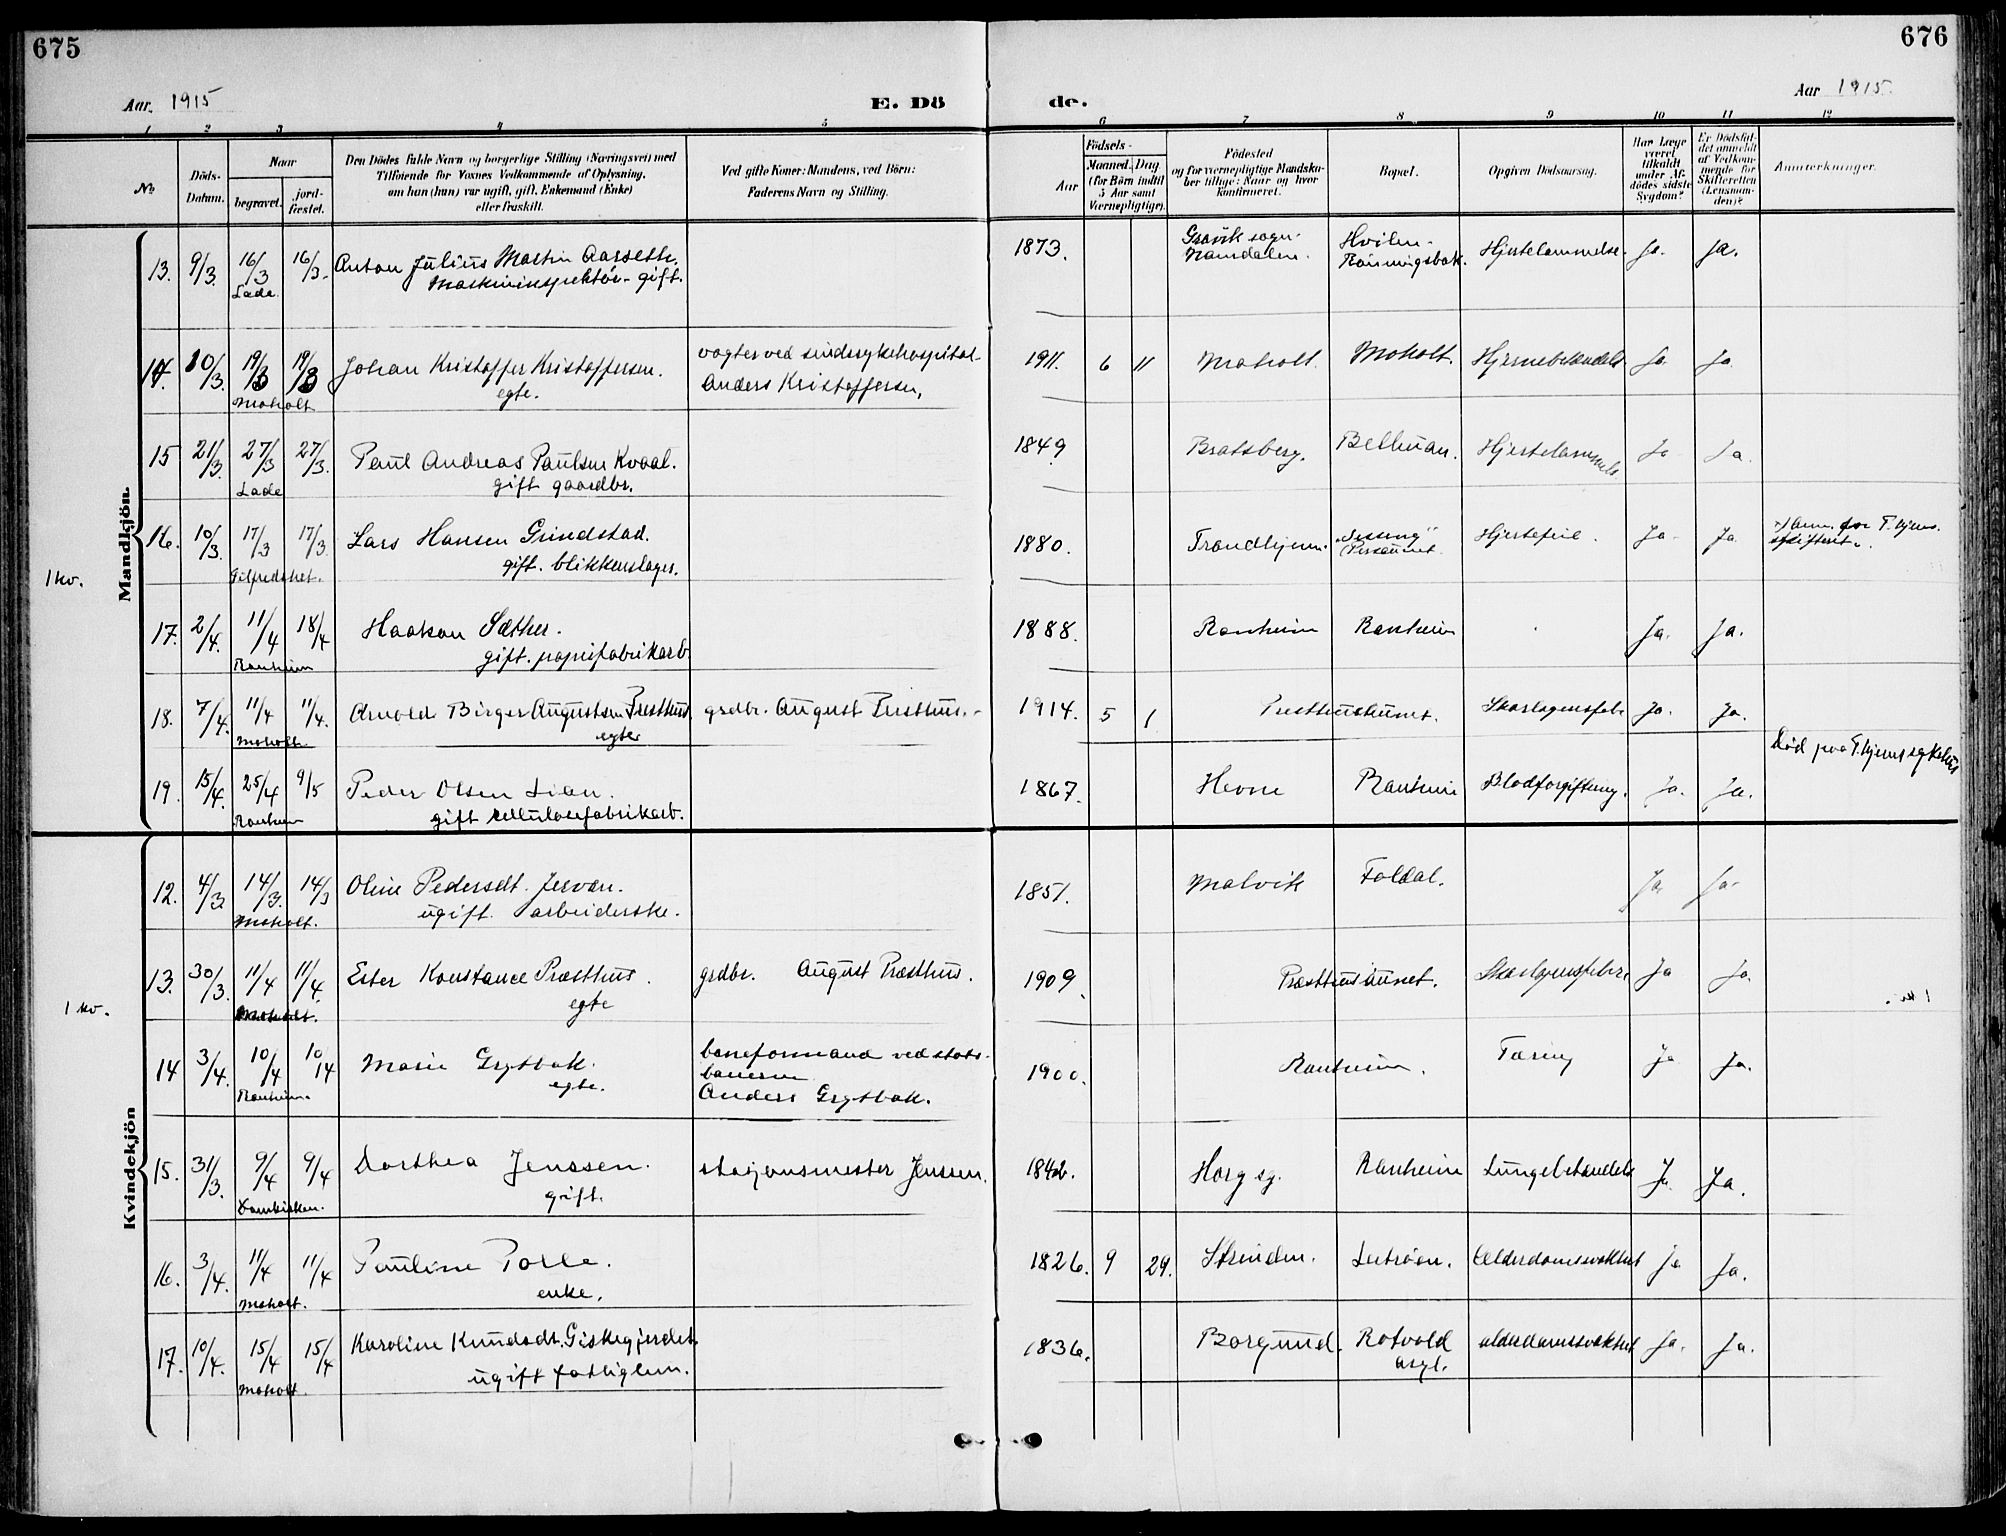 675
676
Aar. 1915
E. Dö
de.
Aar 1915.
1 2 3 4 5 6 7 8 9 10 11 12
No
Döds-Datum.
Naar
begravet.
jord-fæstet.
Den Dödes fulde Navn og borgerlige Stilling (Næringsvei) med
Tilföiende for Voxnes Vedkommende af Oplysning,
om han (hun) var ugift, gift, Enkemand (Enke)
eller fraskilt.
Ved gifte Koner: Mandens, ved Börn:
Faderens Navn og Stilling.
Födsels-
Aar
Maaned.
Dag
(for Börn indtil
5 Aar samt
Værnepligtige).
Födested
og for værnepligtige Mandska-
ber tillige: Naar og hvor
konfirmeret.
Bopæl.
Opgiven Dödsaarsag.
Har Læge
været
tilkaldt
under Af-
dödes sidste
Sygdom?
Er Dödsfal-
det anmeldt
af Vedkom-
mende for
Skifteretten
(Lensman-
den)?
Anmerkninger.
Mandkjön.
1 kv.
13. 9/3. 16/3 Lade. 16/3. Anton Julius Martin Aarseth. 1873. sogn. Namdalen. Hjertelammelse. Ja. Ja.
Maskininspektör - gift.
14. 10/3. 19/3 Moholt 19/3 Johan Kristoffer Kristoffersen. vagter ved sindssykehospital 1911. 6 11 Moholt. Moholt. Ja. Ja.
egte. Anders Kristoffersen,
15 21/3. 27/3 Lade 27/3. Paul Andreas Paulsen Kvaal. 1849 Bratsberg. Ja Ja.
gift gaardbr.
16. 10/3. 17/3 17/3 Lars Hansen Grindstad. 1880. Trondhjem. Hjertefeil. Ja. Ja
gift. blikkenslager.
17. 2/4. 11/4 Ranheim 18/4 Haakon Sæther. 1888. Ranheim Ranheim Ja. Ja.
gift. papirfabrikarb.
18. 7/4. 11/4 Moholt. 11/4. Arnold Birger Augustsen Presthus. grdbr. August Presthus. 1914. 5 1 Presthusaunet. Ja. Ja.
egte
19. 15/4. 25/4 Ranheim 9/5 Peder Olsen Lian. 1867. Hevne Ranheim Blodforgiftning. Ja. Ja. Död paa T.hjems sykehus
gift cellulosefabrikarb.
Kvindekjön
1 kv.
12. 4/3. 14/3. Moholt. 14/3 Oline Pedersdt. Jervan. 1851. Malvik Foldal. Ja Ja
ugift. arbeiderske.
13. 30/3. 11/4 Moholt. 11/4. Ester Konstance Præsthus. grdbr. August Præsthus. 1909. Præsthusaunet. Ja Ja.
egte
14 3/4. 10/4 Ranheim. 10/4 Marie Grytbak. baneformand ved stats-
banerne
egte. Anders Grytbak. 1900. Ranheim. Tæring Ja Ja.
15. 31/3. 9/4 Domkirken. 9/4 Dorthea Jenssen. stasjonsmester Jenssen. 1842. Horg sg. Ranheim Ja Ja.
gift.
16. 3/4. 11/4 Moholt. 11/4 Pauline enke. 1826. 9 29. Strinden. Alderdomssvakhet Ja Ja.
17. 10/4. 15/4 Moholt. 15/4 Karoline Knudsdt. Giskegjerdet. 1836. Borgund. Rotvold asyl. alderdomssvakhet Ja. Ja.
ugift fattiglem.